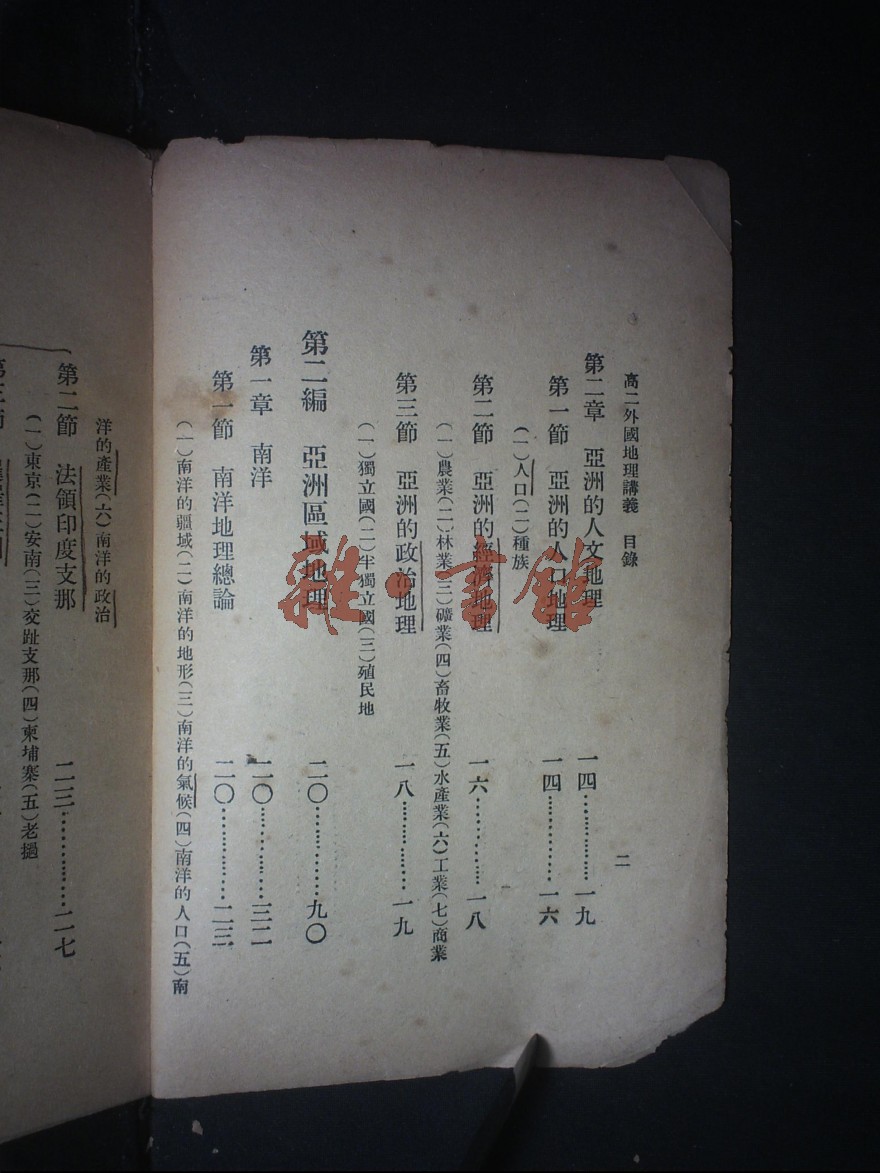 高二外國地理講義　目錄　二
第二章　亞洲的人文地理　一四……………一九
第一節　亞洲的人口地理　一四……………一六
（一）人口（二）種族
第二節　亞洲的經濟地理　一六……………一八
（一）農業（二）林業（三）礦業（四）畜牧業（五）水產業（六）工業（七）商業
第三節　亞洲的政治地理　一八……………一九
（一）獨立國（二）半獨立國（三）殖民地
第二編　亞洲區域地理　二〇……………九〇
第一章　南洋　二〇……………三二
第一節　南洋地理總論　二〇……………二三
（一）南洋的疆域（二）南洋的地形（三）南洋的氣候（四）南洋的人口（五）南
洋的產業（六）南洋的政治
第二節　法領印度支那　二三……………二七
（一）東京（二）安南（三）交趾支那（四）柬埔寨（五）老撾
雜·書館